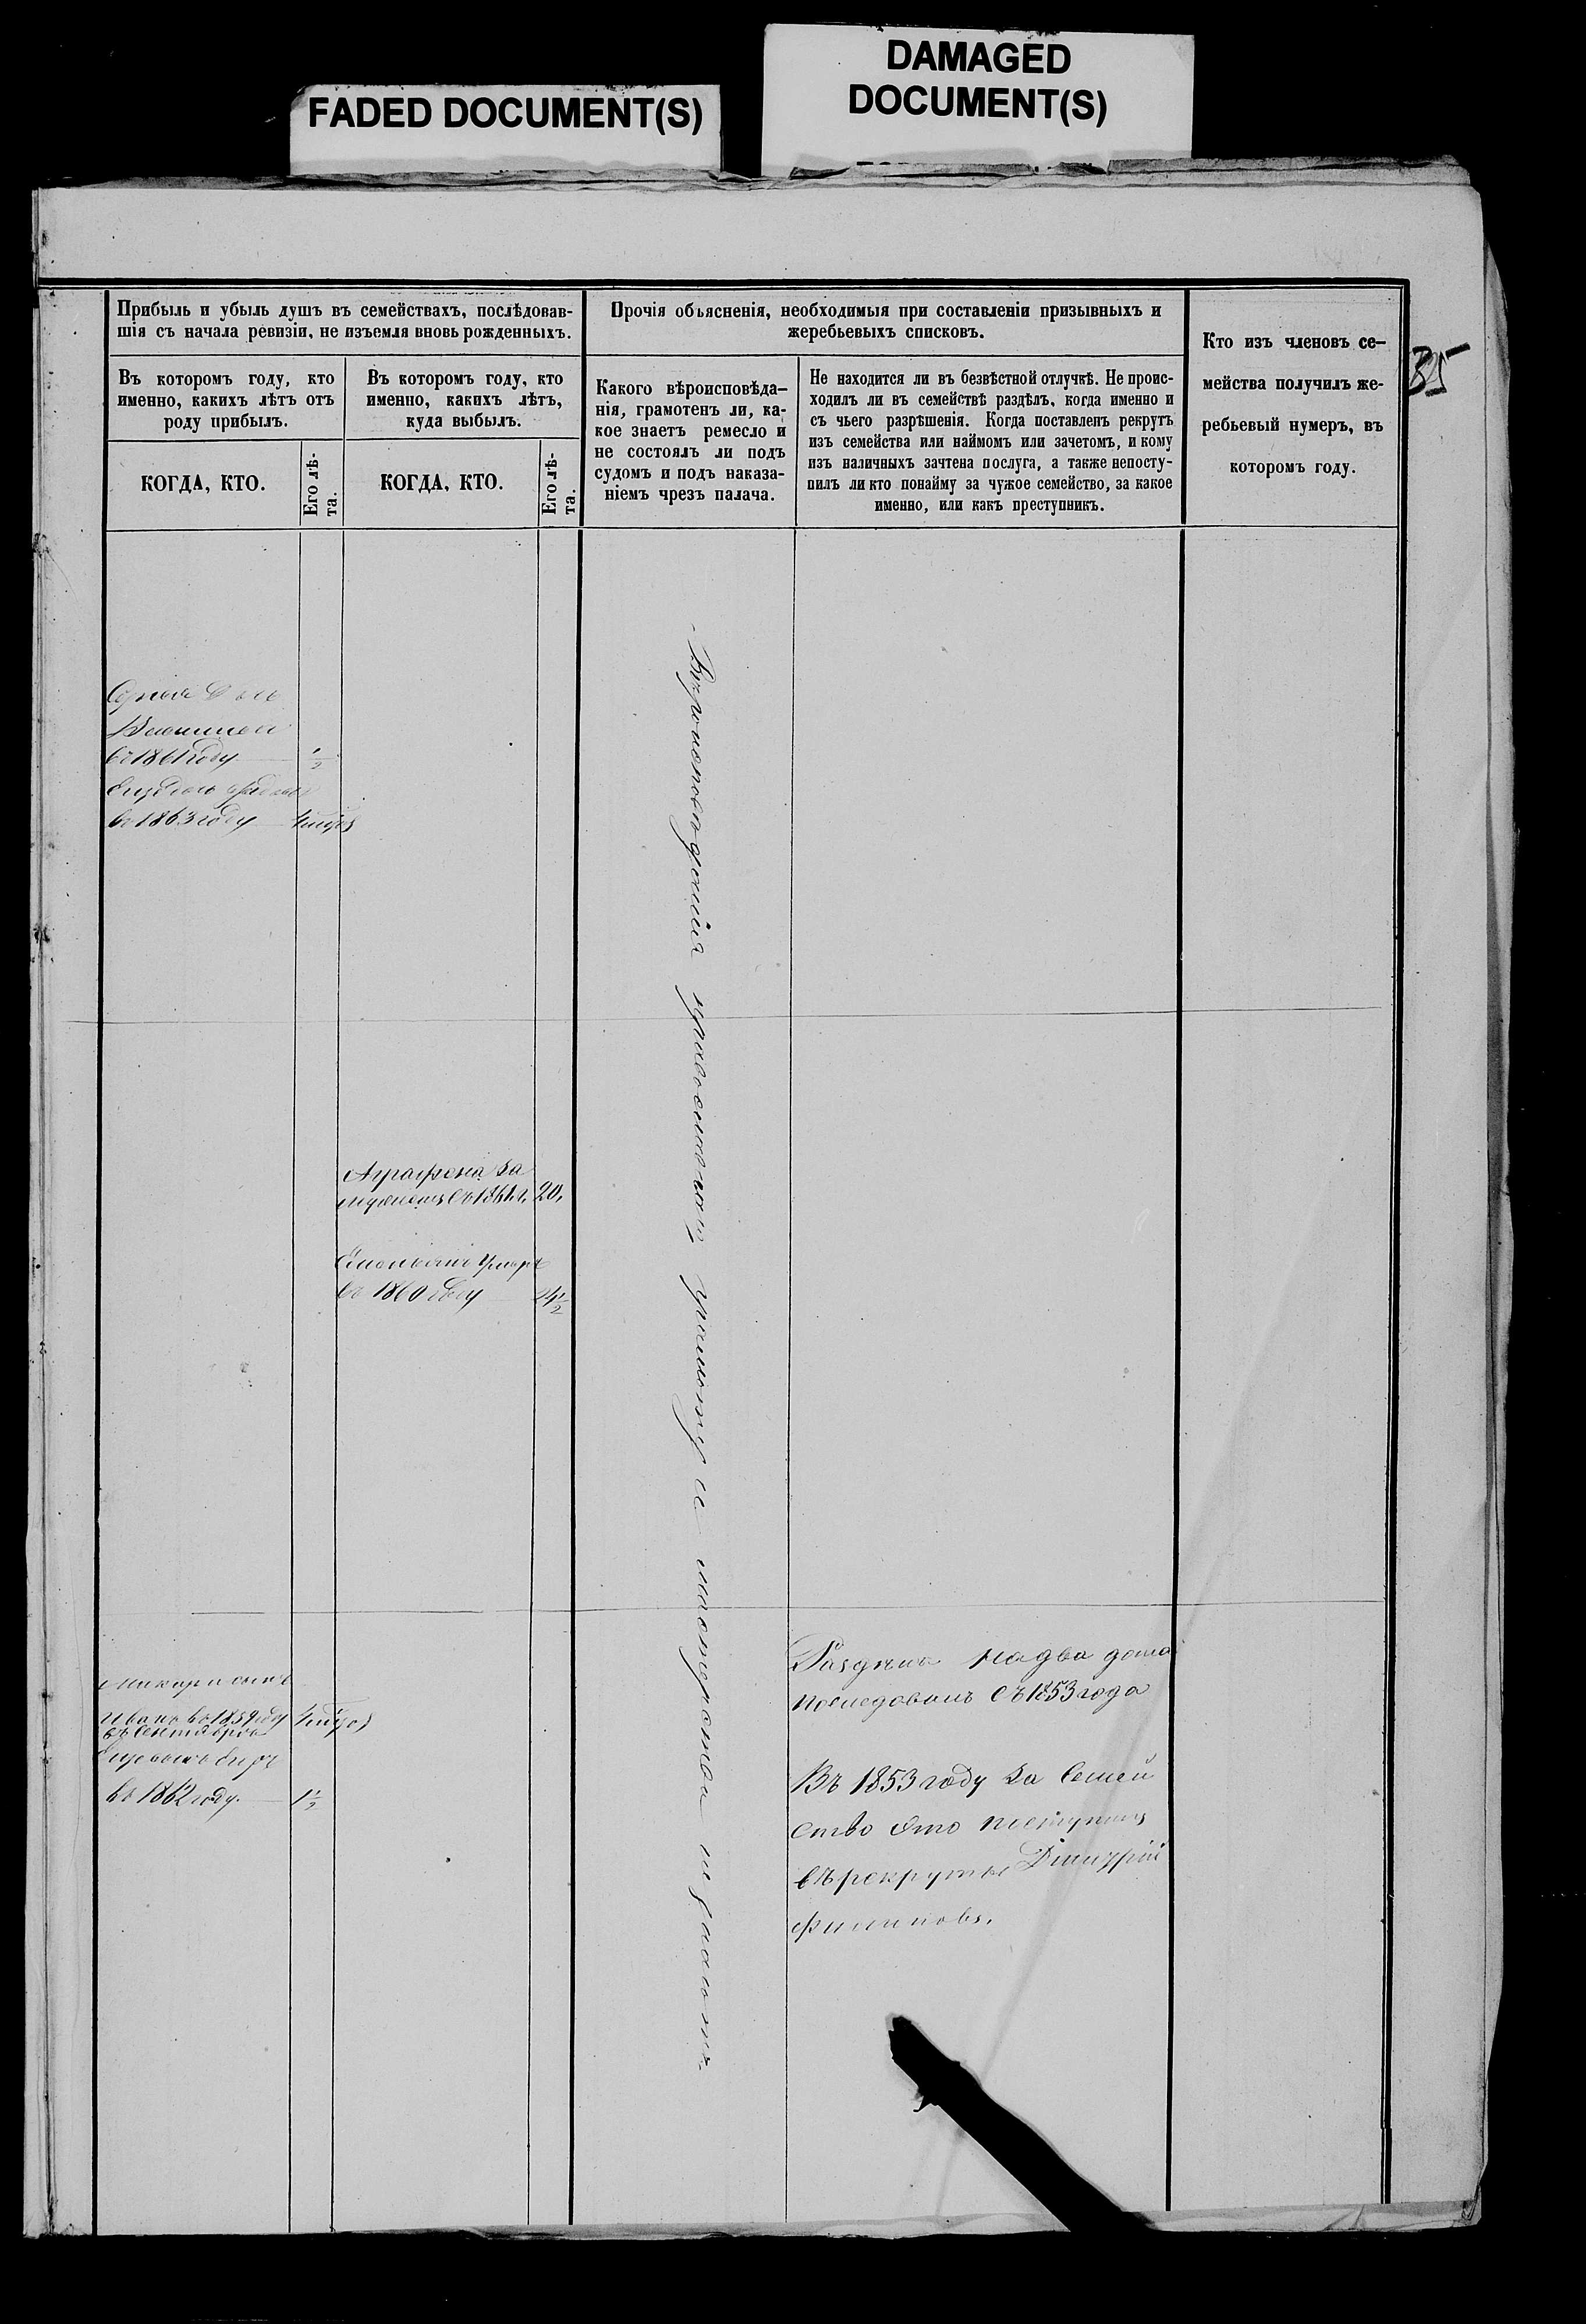 FADED DOCUMENT(S)
DAMAGED
DOCUMENT(S)
35
Прибыль и убыль душъ въ семействахъ, послѣдовав-
шія съ начала ревизіи, не изъемля вновь рожденныхъ.
Въ которомъ году, кто
именно, какихъ лѣтъ отъ
роду прибылъ.
КОГДА, КТО.
Его лѣ-
та.
Въ которомъ году, кто
именно, какихъ лѣтъ,
куда выбылъ.
КОГДА, КТО.
Его лѣ-
та.
Прочія объясненія, необходимыя при составленіи призывныхъ и
жеребьевыхъ списковъ.
Какого вѣроисповѣда-
нія, грамотенъ ли, ка-
кое знаетъ ремесло и
не состоялъ ли подъ
судомъ и подъ наказа-
ніемъ чрезъ палача.
Не находится ли въ безвѣстной отлучкѣ. Не проис-
ходилъ ли въ семействѣ раздѣлъ, когда именно и
съ чьего разрѣшенія. Когда поставленъ рекрутъ
изъ семейства или наймомъ или зачетомъ, и кому
изъ наличныхъ зачтена послуга, а также непосту-
пилъ ли кто понайму за чужое семейство, за какое
именно, или какъ преступникъ.
Кто изъ членовъ се-
мейства получилъ же-
ребьевый нумеръ, въ
которомъ году.
въ 1861 году ½
въ 1863 году
Аграфена за
мужемъ съ 1861 г. 20.
умеръ
въ 1860 году
сынъ
Иванъ въ 1859 году
въ Сентябрѣ
въ 1862 году. 1½
Вѣроисповѣданія православнаго грамоты и мастерства не знаютъ
Раздѣлъ на два дома
последовалъ съ 1853 года
Въ 1853 году за семей
ство это поступилъ
въ рекруты Димитрій
Филиповъ.